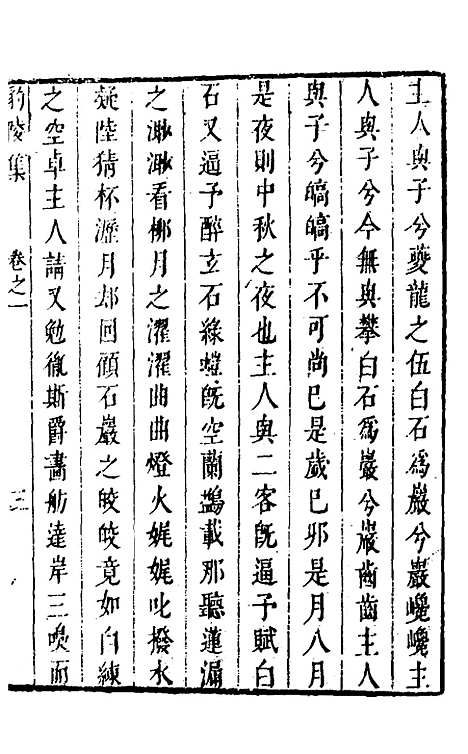 主人與子兮夔龍之伍白石為巖兮巖巉巉主
人與子兮今無與攀白石為巖兮巖齒齒主人
與子兮皜皜乎不可尚已是歲己卯是月八月
是夜則中秋之夜也主人與二客既逼予賦白
石又逼予醉立石綠螘既空蘭鷁載那聽蓮漏
之渺渺看梛月之濯濯曲曲燈火娓娓叱撥水
疑陸猜杯瀝月却回顧石巖之皎皎竟如白練
之空卓主人請又勉徹斯爵畵舫達岸三嘆而
豹陵集 卷之一 三